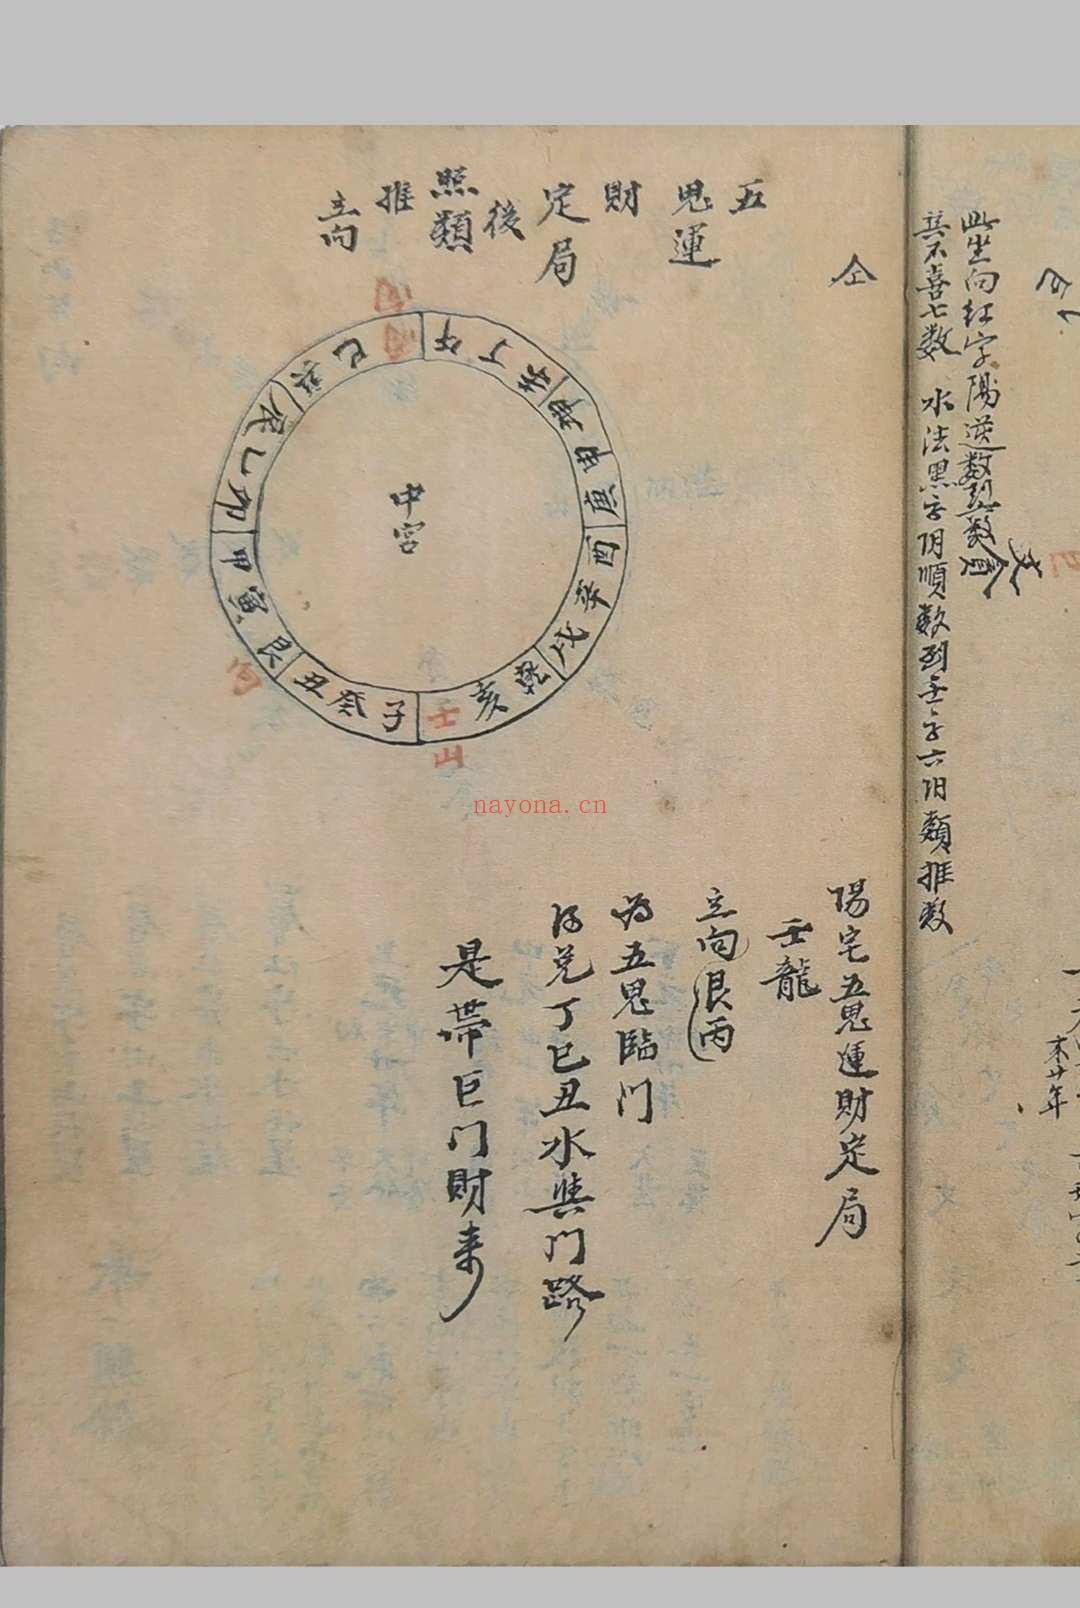 此坐向紅字陽逆數到數
其不喜七數 水法黑字阴順數到壬字六阳類推数
未廿年
仝
五
鬼運
財
定局
後
照類
推
立向
午丁未坤申庚酉辛戌乾亥壬子癸丑艮寅甲卯乙辰巽巳丙
向
山
中宮
陽宅五鬼運財定局
壬龍
立向艮丙
为五鬼臨门
兑丁巳丑水與门路
是帶巨门財来
nayona.cn